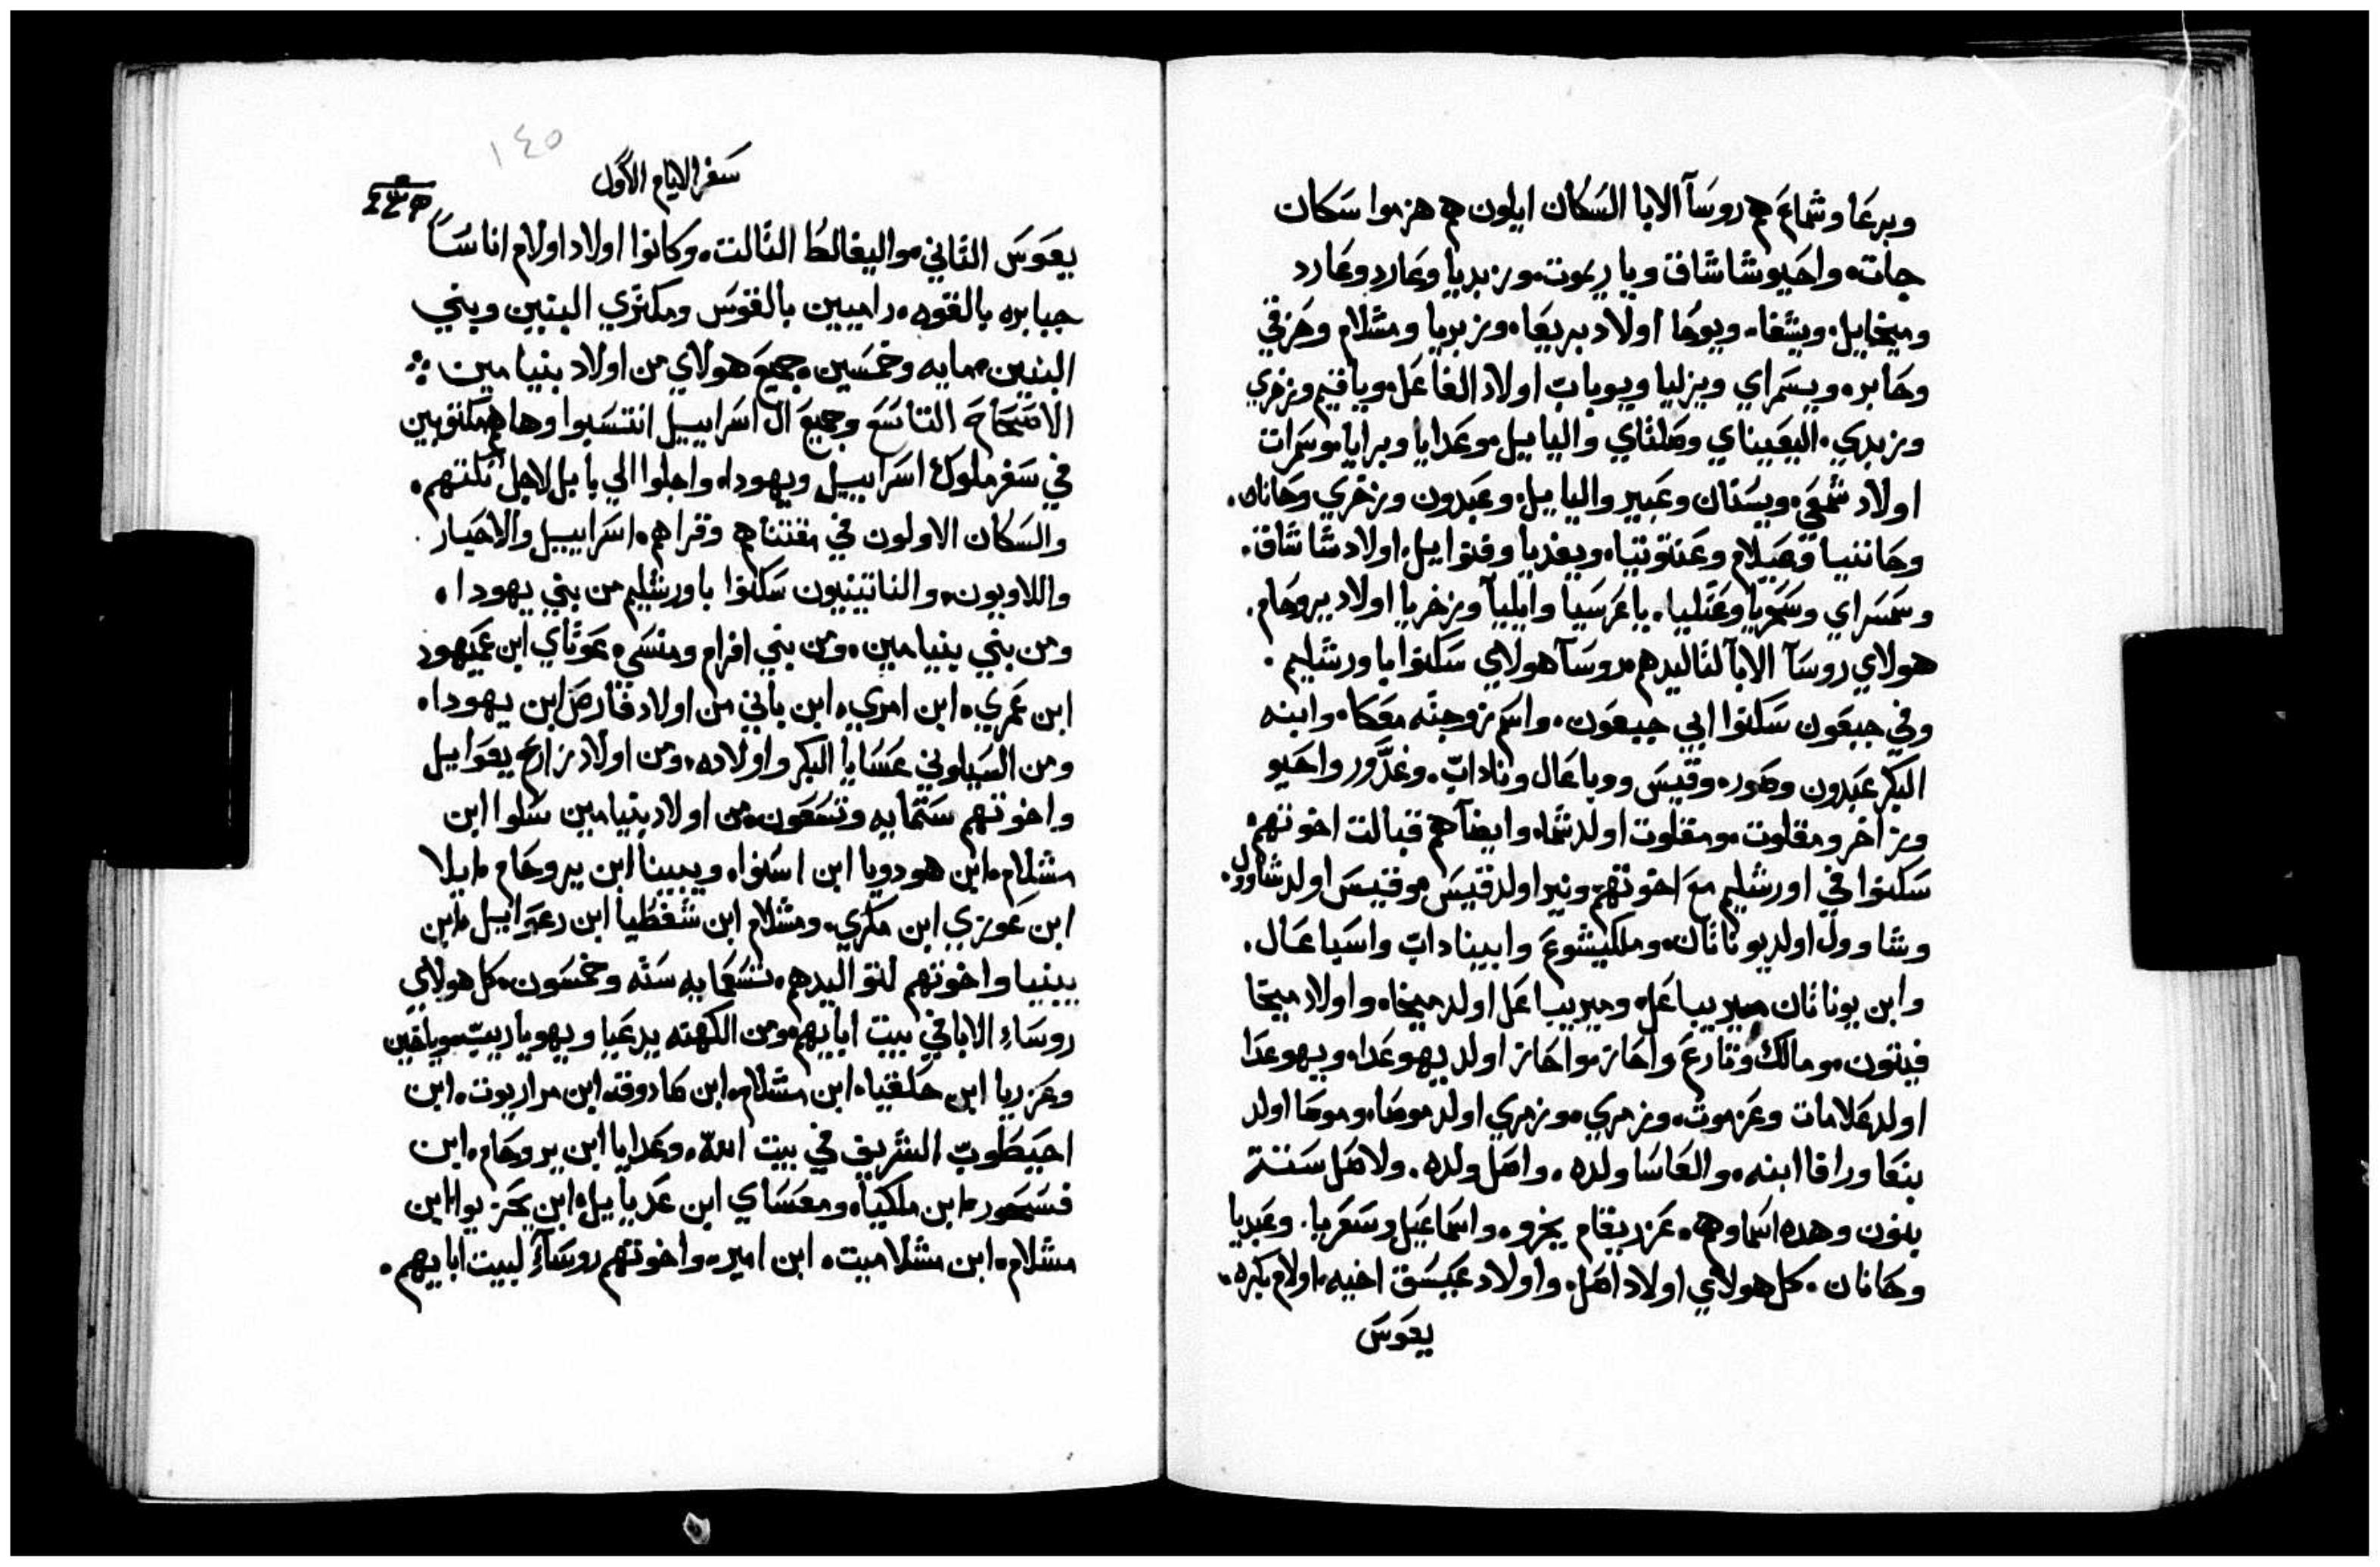 وبرعا وشماع هم روسآ الابا السكان ايلون هم هزموا سكان
جات، واحيو شاشاق وياريموت، وزبديا وعارد وعادر
وميخاييل، ويشفا، ويوحا اولاد بريعا، وزبديا ومشلام وحزقي
وحابر، ويسمراي ويزليا ويوباب اولاد الفاعل، وياقيم وزخري
وزبدي، اليعيناي وصلثاي والياييل، وعدايا وبرايا، وسمرات
اولاد شمعي، ويسفان وعبير والياييل، وعبدون وزخري وحانان.
وحاننيا وعيلام وعنتوتيا، ويفديا وفنواييل، اولاد شاشاق.
وسمسراي وسحريا وعتليا، ياعرسيا وايليآ وزخريا اولاد يروحام.
هولاي روسآ الابآ لتاليدهم روسآ هولاي سكنوا باورشليم.
وفي جبعون سكنوا ابي جبعون، واسم زوجته معكا، وابنه
البكر عبدون وصور، وقيس وباعال وناداب، وغدور واحيو
وزاخر ومقلوت، ومقلوت اولد شما، وايضآ هم قبالت اخوتهم
سكنوا في اورشليم مع اخوتهم ونير اولد قيس، وقيس اولد شاوول.
وشاوول اولد يوناثان، وملكيشوع وابيناداب واسباعال.
وابن يوناثان ميريباعل، وميريباعل اولد ميخا، واولاد ميخا
فيتون، ومالك وتارع واحاز، واحاز اولد يهوعدا، ويهوعدا
اولد علامات وعزموت، وزمري، وزمري اولد موصا، وموصا اولد
بنعا ورافا ابنه، والعاسا ولده، واصل ولده، ولاصل ستة
بنون وهده اسماوهم، عزريقام يخرو، واسماعيل وسعريا، وعبديا
وحانان، كل هولاي اولاد اصل، واولاد عيسق اخيه، اولام بكره،
يعوس
١٤٥
سفر الايام الاول
يعوس الثاني، واليفالط الثالت، وكانوا اولاد اولام اناسا
جبابره بالقوه، راميين بالقوس ومكتري البنين وبني
البنين، مايه وخمسين، جميع هولاي من اولاد بنيامين
الاصحاح التاسع وجميع ال اسراييل انتسبوا وها هم مكتوبين
في سفر ملوك اسراييل ويهودا، واجلوا الي بابل لاجل تلتهم.
والسكان الاولون في مقتناهم وقراهم، اسراييل والاحبار.
واللاويون، والناتينيون سكنوا باورشليم من بني يهودا.
ومن بني بنيامين، ومن بني افرام ومنسي، عوثاي ابن عميهود
ابن عمري، ابن امري، ابن باني من اولاد فارص ابن يهودا.
ومن السيلوني عسايا البكر واولاده، ومن اولاد زارع يعواييل
واخوتهم ستمايه وتسعون، من اولاد بنيامين سلوا ابن
مشلام، ابن هودويا ابن اسنوا، ويبينا ابن يروحام، ايلا
ابن عوزي ابن مكري، ومشلام ابن شفطيا ابن رعواييل، ابن
يبنيا واخوتهم لتواليدهم، تسعمايه سته وخمسون، كل هولاي
روساء الابا في بيت اباييهم، ومن الكهنه يدعيا ويهوياريب، وياخين
وعزريا ابن حلقيا، ابن مشلام، ابن صادوق، ابن مراريوت، ابن
احيطوب الشريف في بيت الله، وعدايا ابن يروحام، ابن
فسحور، ابن ملكيا، ومعساي ابن عدياييل، ابن يحزيوا ابن
مشلام، ابن مشلاميت، ابن امير، واخوتهم روسآء لبيت اباييهم.